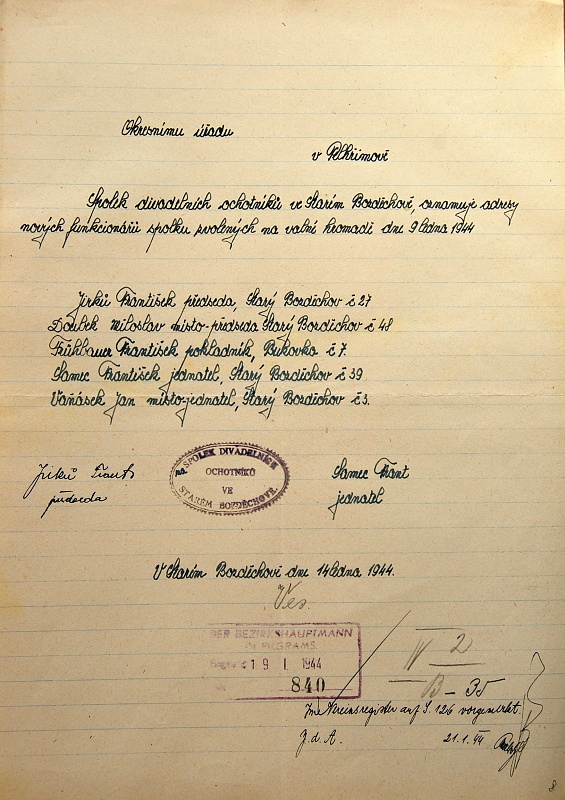 Okresnímu úřadu
v Pelhřimově
Spolek divadelních ochotníků ve Starém Bozděchově, oznamuje adresy
nových funkcionářů spolku zvolených na valné hromadě dne 9 ledna 1944
Jirků František předseda, Starý Bozděchov č 27
Doubek Miloslav místo-předseda Starý Bozděchov č 48
Frühbauer František pokladník, Bukovka č 7.
Samec František jednatel, Starý Bozděchov č 39
Vaňásek Jan místo-jednatel, Starý Bozděchov č 3.
Jirků Frant
předseda
SPOLEK DIVADELNÍCH
OCHOTNÍKŮ
VE
STARÉM BOZDĚCHOVĚ.
Samec Frant
jednatel
V Starém Bozděchově dne 14 ledna 1944.
Ves.
DER BEZIRKSHAUPTMANN
IN PILGRAMS.
19 I 1944
840
IV 2
B - 35
Im Vereinsregister auf S. 126 vorgemerkt.
Z. d. A. 21.1.44
8